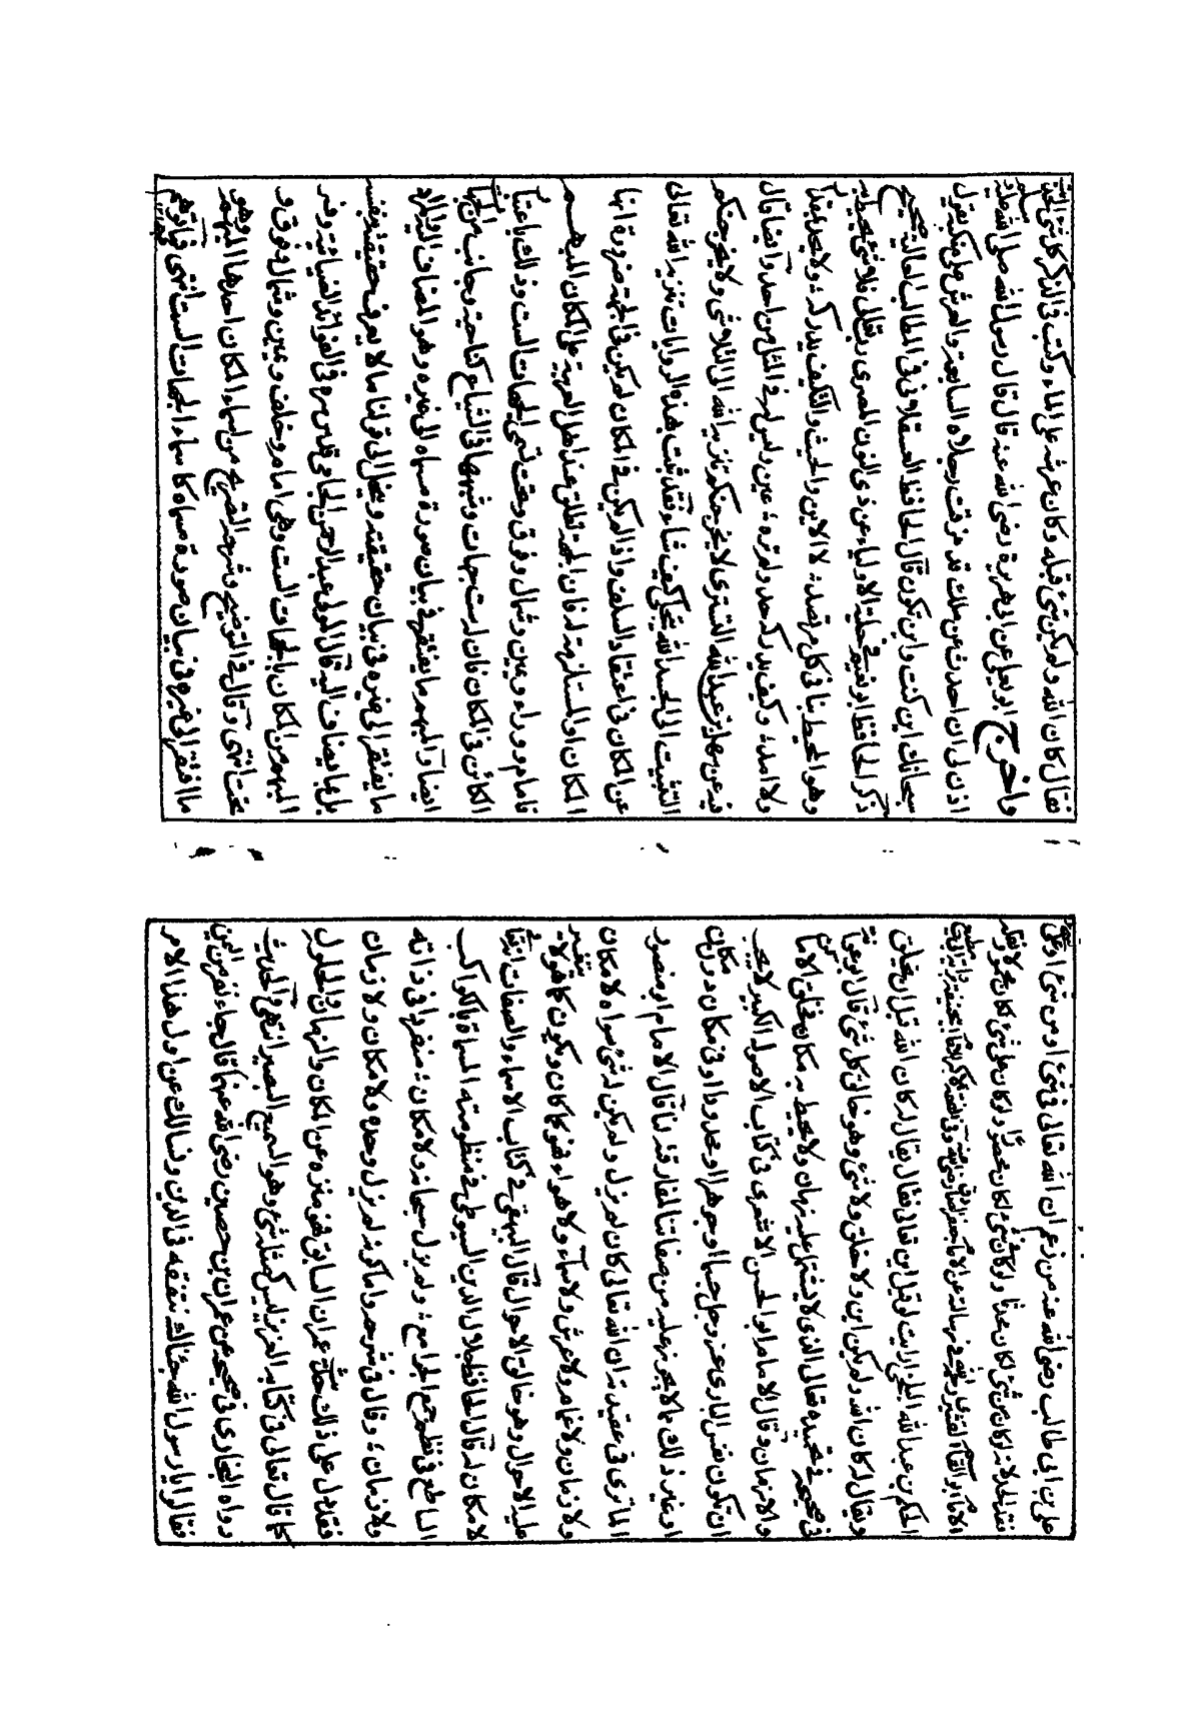 علي بن ابي طالب رضي الله عنه من زعم ان الله تعالى في شئ او من شئ او على شئ
فقد الحد لانه لو كان من شئ لكان محدثا ولو كان في شئ لكان محصورا ولو كان على شئ لكان محمولا
الامام ابو القاسم القشيري رحمه الله في رسالته عن الامام جعفر الصادق رضي الله عنه
الحكم بن عبد الله البلخي ارايت لو قيل اين الله تعالى فقال يقال له كان الله قبل ان يخلق الخلق
ويقال له كان الله ولم يكن اين ولا خلق ولا شئ وهو خالق كل شئ قال ابو عوانة
في صحيحه في تحميده تعالى الذي لا يشتمل عليه زمان ولا يحيط به مكان خلق الاماكن
والازمان وقال الامام ابو الحسن الاشعري في كتاب الاصول الكبير لا يجب
ان تكون نفس الباري عز وجل جسما او جوهرا او محدودا او في مكان دون مكان
او غير ذلك مما لا يجوز عليه من صفاتنا لمفارقته لنا قال الامام ابو منصور
الماتريدي في عقيدته ان الله تعالى كان لم يزل ولم يكن له شئ سواه لا مكان
ولا زمان ولا غمام ولا عرش ولا سماء ولا هواء فهو كما كان ويكون كما هو لا يتغير
عليه الاحوال وهو خالق الاحوال قال البيهقي في كتاب الاسماء والصفات القديم
لا مكان له قال الحافظ جلال الدين السيوطي في منظومته المسماة بالكواكب
الساطع في نظم جمع الجوامع ولم يزل سبحانه ولا مكان منفردا في ذاته
ولا زمان وقال في شرحه واما كونه لم يزل وحده ولا مكان ولا زمان
فقد دل على ذلك حديث عمران السابق فهو منزه عن المكان والزمان والحلول
كما قال تعالى في كتابه العزيز ليس كمثله شئ وهو السميع البصير انتهى والحديث
رواه البخاري في صحيحه عن عمران بن حصين رضي الله عنهما قال جاء نفر من اليمن
فقالوا يا رسول الله جئناك نتفقه في الدين ونسالك عن اول هذا الامر
فقال كان الله ولم يكن شئ قبله وكان عرشه على الماء وكتب في الذكر كل شئ الحديث
واخرج ابو يعلى عن ابي هريرة رضي الله عنه قال قال رسول الله صلى الله عليه وسلم
اذن لي ان احدث عن ملك قد مرقت رجلاه السابعة والعرش على منكبه يقول
سبحانك اين كنت واين تكون قال الحافظ العسقلاني في المطالب العالية صحيح
ذكر الحافظ ابو نعيم في حلية الاولياء عن ذي النون المصري رب تعالى فلا شئ يحيط به
وهو المحيط بنا في كل مرتصد لا الاين والحيث والتكييف يدركه ولا يحد بمقدار
ولا امد وكيف يدركه حد ولم تره عين وليس له في المثل من احد وايضا قال
فيه عن سهل بن عبد الله التستري لا يخرجنكم تنزيه الله الى التلاشي ولا يخرجنكم
التثبيت الى الجسد الله يتجلى كيف شاء فقد ثبت بهذه الروايات تنزيه الله تعالى
عن المكان في اعتقاد السلف واذا لم يكن في المكان لم يكن في الجهة ضرورة انها
المكان او المستلزمة له فان الجهة تطلق عند اهل العربية على المكان المبهم
فامام ووراء ويمين وشمال وفوق وتحت تسمى الجهات الست وذلك باعتبار
الكائن في المكان فان له ست جهات وشبهها في الشياع كناحية وجانب من المبهم
ايضا والمبهم ما يفتقر في بيان صورة مسماه الى غيره وهو المضاف اليه المراد
ما يفتقر الى غيره في بيان حقيقته ويميل الى قولنا ما لا يعرف حقيقته بنفسه
بل بما يضاف اليه قال المولى عبد الرحمن الجامي قدس سره في الفوائد الضيائية وفسر
المبهم من المكان بالجهات الست وهي امام وخلف ويمين وشمال وفوق و
تحت انتهى وقال في التوضيح وشرحه التصريح من اسماء المكان احدها المبهم وهو
ما افتقر الى غيره في بيان صورة مسماه كاسماء الجهات الست انتهى